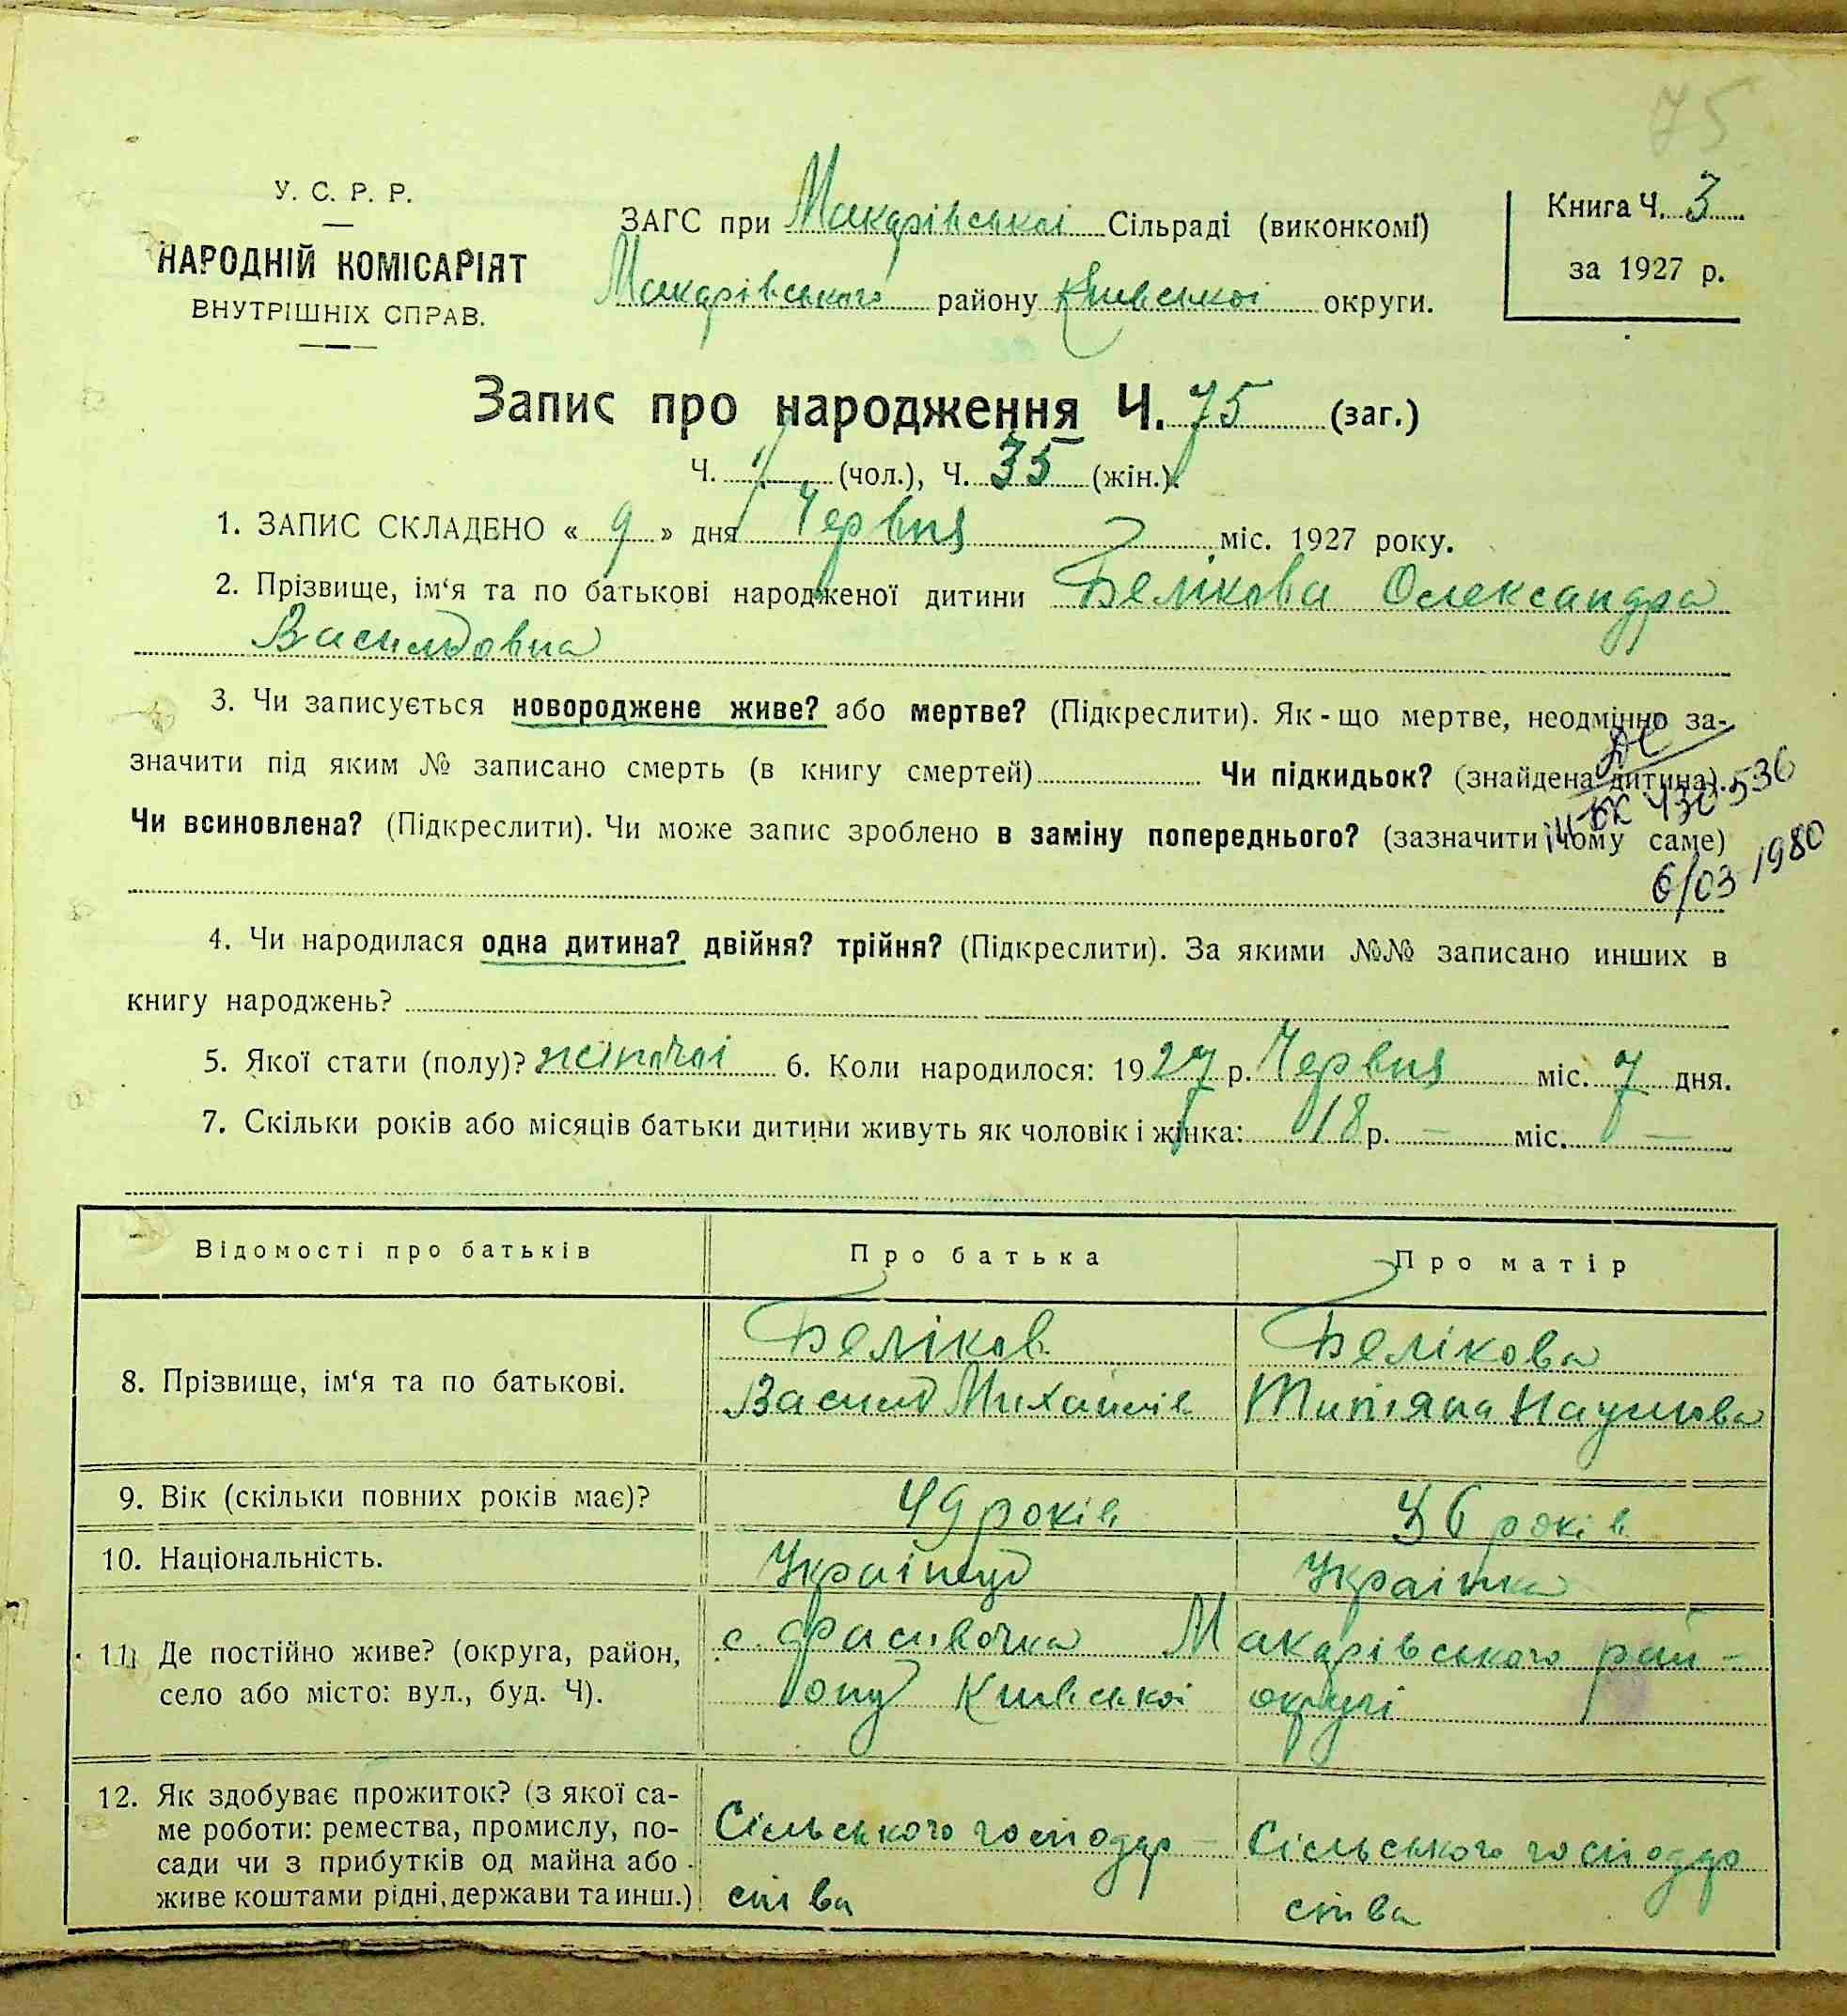 75
У. С. Р. Р.
НАРОДНІЙ КОМІСАРІЯТ
ВНУТРІШНІХ СПРАВ.
ЗАГС при Макарівської Сільраді (виконкомі)
Макарівського району Київської округи.
Книга Ч. 3
за 1927 р.
Запис про народження Ч. 75 (заг.)
Ч. (чол.), Ч. 35 (жін.).
1. ЗАПИС СКЛАДЕНО « 9 » дня Червня міс. 1927 року.
2. Прізвище, ім‘я та по батькові народженої дитини Белікова Олександра
Васильовна
3. Чи записується новороджене живе? або мертве? (Підкреслити). Як-що мертве, неодмінно за-
значити під яким № записано смерть (в книгу смертей) Чи підкидьок? (знайдена дитина).
430536
Чи всиновлена? (Підкреслити). Чи може запис зроблено в заміну попереднього? (зазначити і чому саме)
6/03 1980
4. Чи народилася одна дитина? двійня? трійня? (Підкреслити). За якими №№ записано инших в
книгу народжень?
5. Якої стати (полу)? жіночої 6. Коли народилося: 1927 р. Червня міс. 7 дня.
7. Скільки років або місяців батьки дитини живуть як чоловік і жінка: 18 р. — міс. —
Відомості про батьків Про батька Про матір
8. Прізвище, ім‘я та по батькові.
Беліков Белікова
Василь Михайлів Титіяна Наумова
9. Вік (скільки повних років має)? 49 років 36 років
10. Національність. Українець Українка
11. Де постійно живе? (округа, район,
село або місто: вул., буд. Ч).
с. Фасівочка Макарівського рай-
ону Київської округі
12. Як здобуває прожиток? (з якої са-
ме роботи: ремества, промислу, по-
сади чи з прибутків од майна або
живе коштами рідні, держави та инш.)
Сільського господар- Сільського господар
ства ства